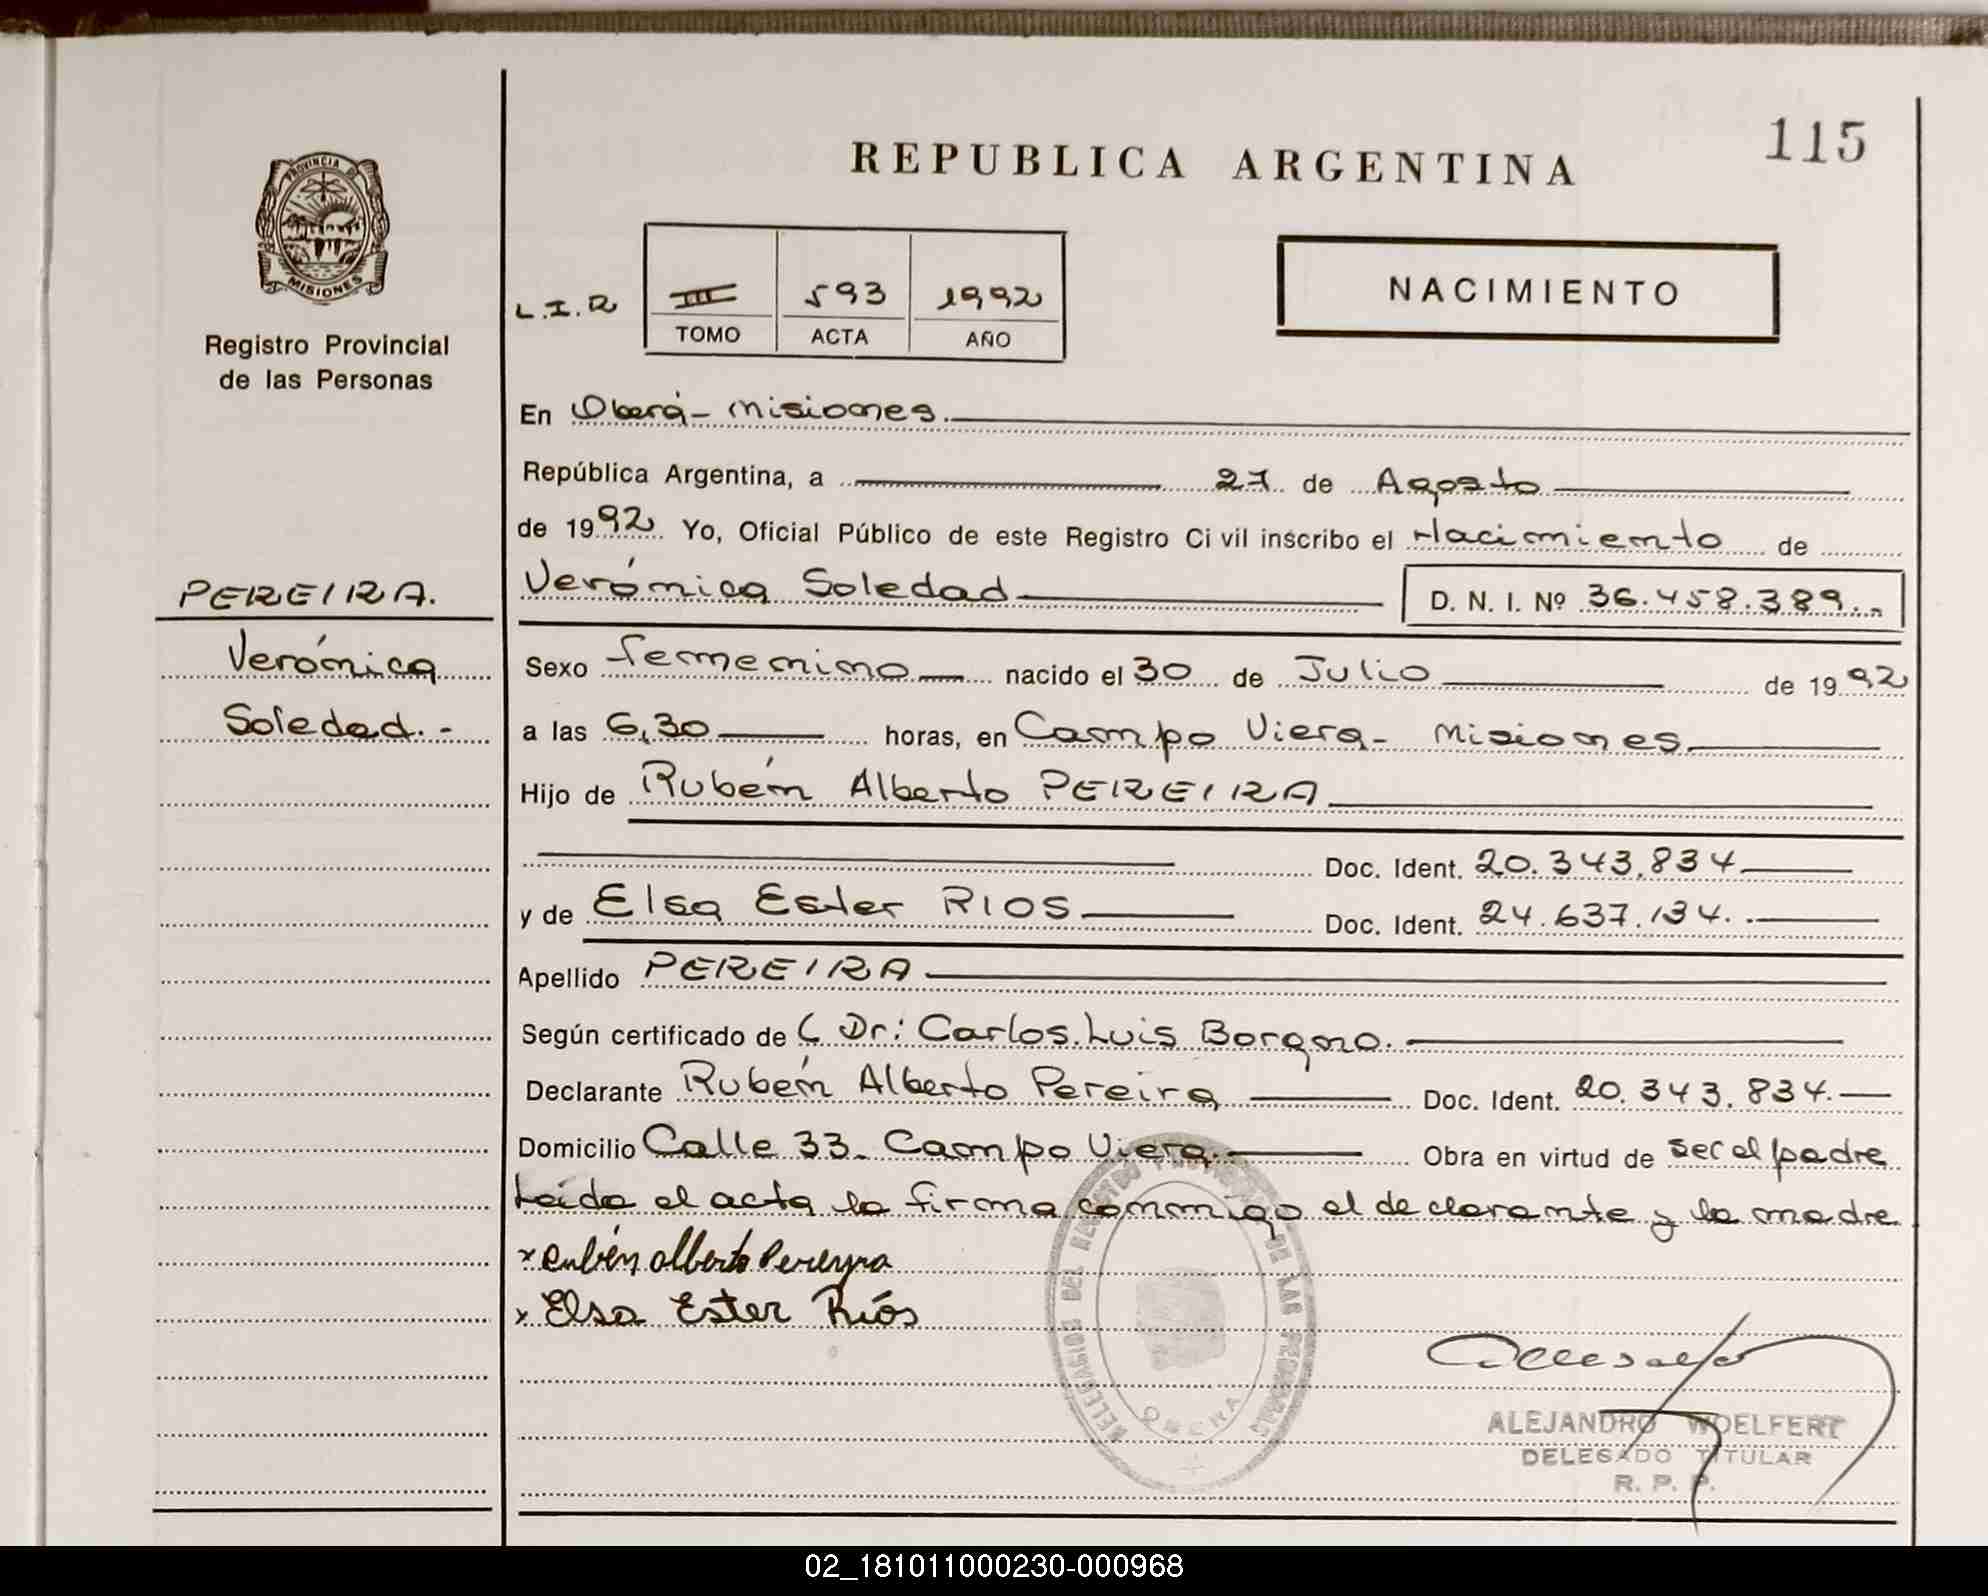 115
REPUBLICA ARGENTINA
PROVINCIA DE
MISIONES
Registro Provincial
de las Personas
NACIMIENTO
L.I.R III 593 1992
TOMO ACTA AÑO
En Oberá - Misiones.
República Argentina, a 27 de Agosto
de 1992 Yo, Oficial Público de este Registro Civil inscribo el Nacimiento de
PEREIRA.
Verónica Soledad D. N. I. Nº 36.458.389.-
Verónica
Sexo femenino nacido el 30 de Julio de 1992
Soledad.-
a las 6,30 horas, en Campo Viera - Misiones
Hijo de Rubén Alberto PEREIRA
Doc. Ident. 20.343.834
y de Elsa Ester RIOS Doc. Ident. 24.637.134.
Apellido PEREIRA
Según certificado de Dr: Carlos Luis Borgno.
Declarante Rubén Alberto Pereira Doc. Ident. 20.343.834.
Domicilio Calle 33. Campo Viera. Obra en virtud de ser el padre
Leída el acta la firma conmigo el declarante y la madre
x Rubén Alberto Pereyra
x Elsa Ester Ríos
DELEGACION DEL REGISTRO PROVINCIAL DE LAS PERSONAS
OBERA
ALEJANDRO WOELFERT
DELEGADO TITULAR
R. P. P.
02_181011000230-000968